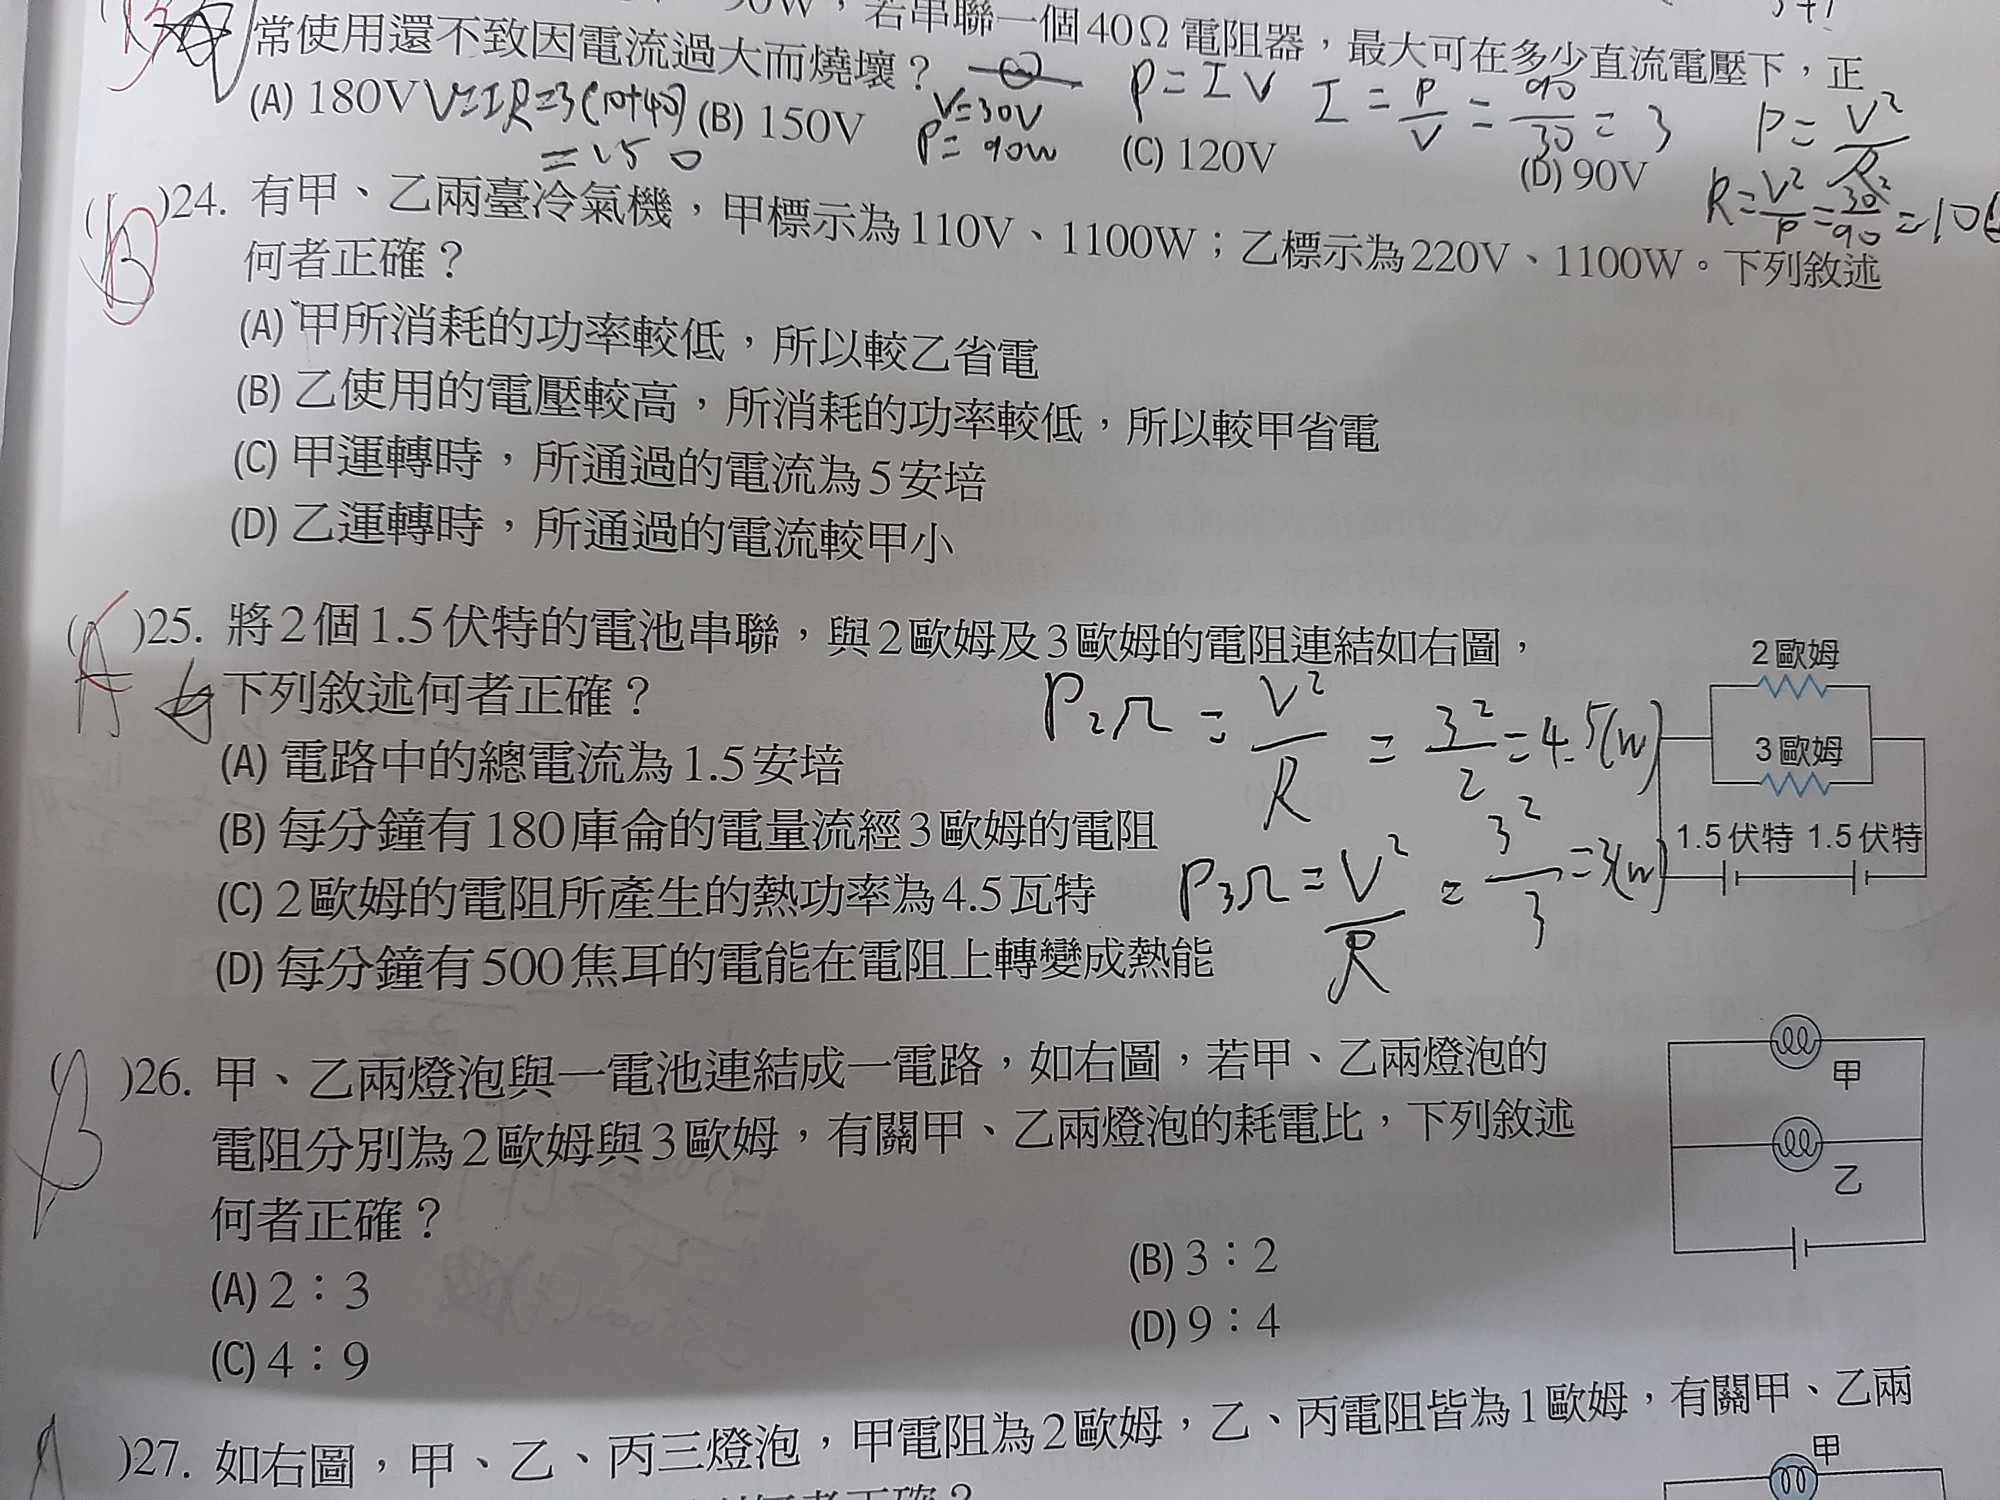 90W，若串聯一個40Ω電阻器，最大可在多少直流電壓下，正
常使用還不致因電流過大而燒壞？
V=30V
P=90W
P=IV I=P/V=90/30=3
P=V²/R
R=V²/P=30²/90=10
(A) 180V V=IR=3(10+40)
=150
(B) 150V
(C) 120V
(D) 90V
( )24. 有甲、乙兩臺冷氣機，甲標示為110V、1100W；乙標示為220V、1100W。下列敘述
何者正確？
(A) 甲所消耗的功率較低，所以較乙省電
(B) 乙使用的電壓較高，所消耗的功率較低，所以較甲省電
(C) 甲運轉時，所通過的電流為5安培
(D) 乙運轉時，所通過的電流較甲小
(A)25. 將2個1.5伏特的電池串聯，與2歐姆及3歐姆的電阻連結如右圖，
下列敘述何者正確？
(A) 電路中的總電流為1.5安培
(B) 每分鐘有180庫侖的電量流經3歐姆的電阻
(C) 2歐姆的電阻所產生的熱功率為4.5瓦特
(D) 每分鐘有500焦耳的電能在電阻上轉變成熱能
P₂Ω=V²/R=3²/2=4.5(W)
P₃Ω=V²/R=3²/3=3(W)
2歐姆
3歐姆
1.5伏特 1.5伏特
(B)26. 甲、乙兩燈泡與一電池連結成一電路，如右圖，若甲、乙兩燈泡的
電阻分別為2歐姆與3歐姆，有關甲、乙兩燈泡的耗電比，下列敘述
何者正確？
(A) 2：3
(B) 3：2
(C) 4：9
(D) 9：4
甲
乙
)27. 如右圖，甲、乙、丙三燈泡，甲電阻為2歐姆，乙、丙電阻皆為1歐姆，有關甲、乙兩
甲